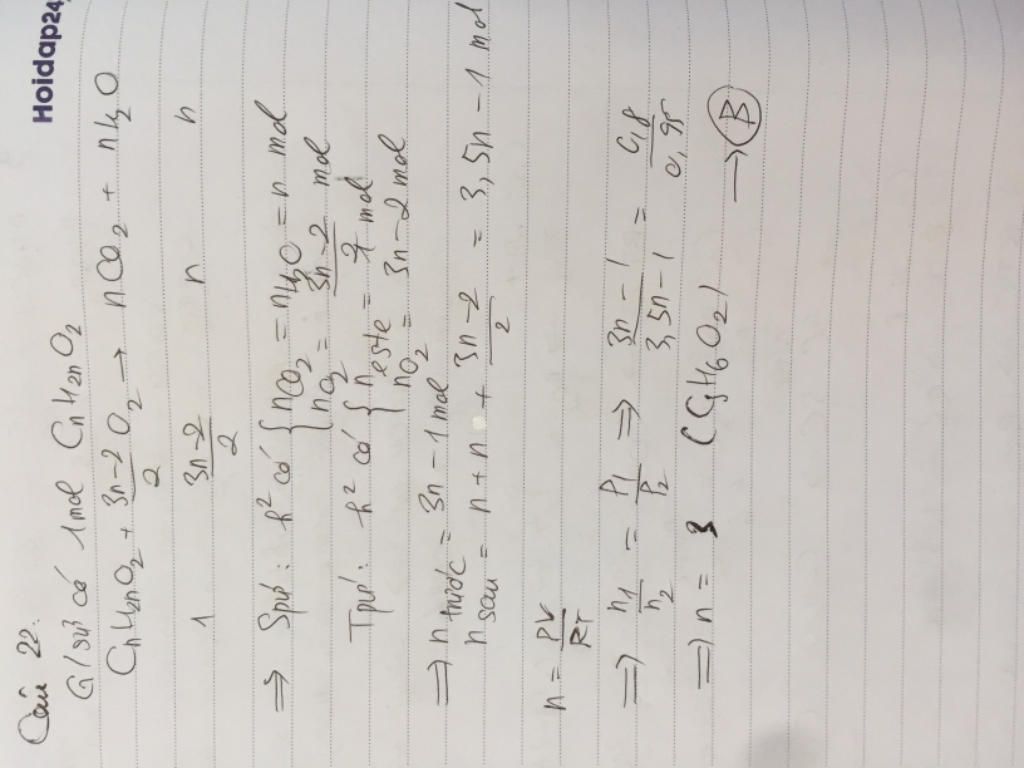 Hoidap24
Câu 22:
G/sử có 1 mol CnH2nO2
CnH2nO2 + (3n-2)/2 O2 → nCO2 + nH2O
1 (3n-2)/2 n n
⇒ Spứ : h² có { nCO2 = nH2O = n mol
nO2 = (3n-2)/2 mol
Tpứ : h² có { n este = 1 mol
nO2 = 3n-2 mol
⇒ n trước = 3n-1 mol
n sau = n + n + (3n-2)/2 = 3,5n - 1 mol
n = PV/RT
⇒ n1/n2 = P1/P2 ⇒ (3n-1)/(3,5n-1) =
⇒ n = 3 → B